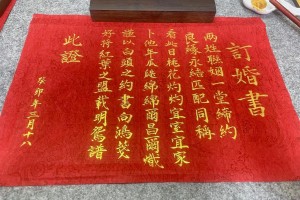 訂婚書
两姓聯姻一堂締約
良緣永結匹配同稱
看此日桃花灼灼宜室宜家
卜他年瓜瓞綿綿爾昌爾熾
謹以白頭之約書向鴻箋
好將紅葉之盟載明鴛譜
此證
癸卯年三月十八